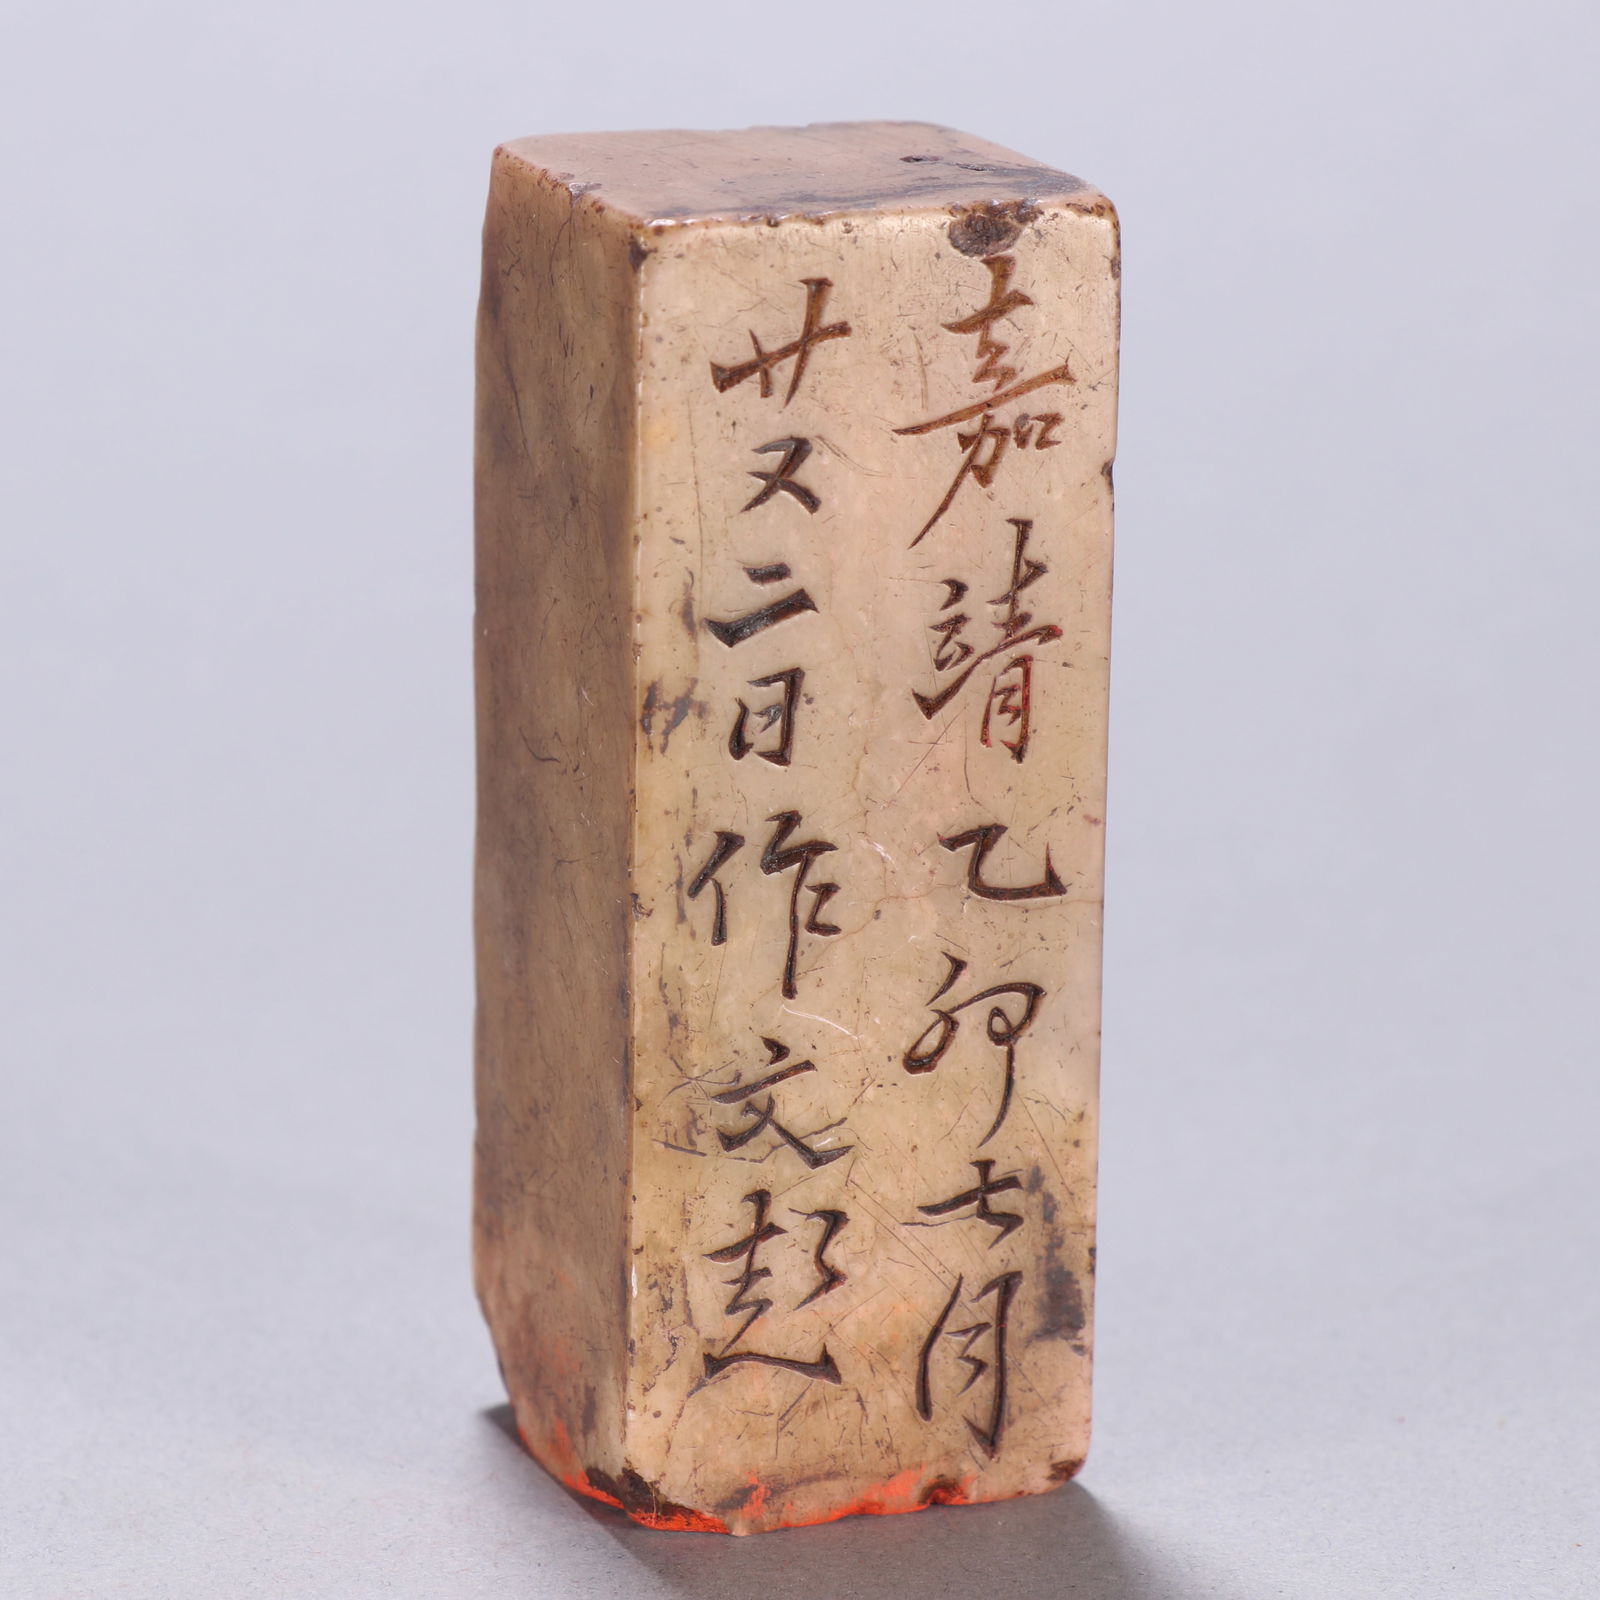 嘉靖乙卯七月
廿又二日作文彭